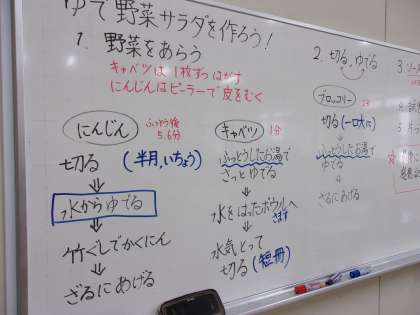 ゆで野菜サラダを作ろう!
1. 野菜をあらう
キャベツは1枚ずつはがす
にんじんはピーラーで皮をむく
にんじん ふっとう後 5.6分
切る (半月,いちょう)
↓
水からゆでる
↓
竹ぐしでかくにん
↓
ざるにあげる
キャベツ 1分
ふっとうしたお湯で
さっとゆでる
↓
水をはったボウルへ
さます
↓
水気とって
切る(短冊)
2. 切る, ゆでる
ブロッコリー
切る(一口大に)
↓
ふっとうしたお湯で
ゆでる
↓
ざるにあげる
3.